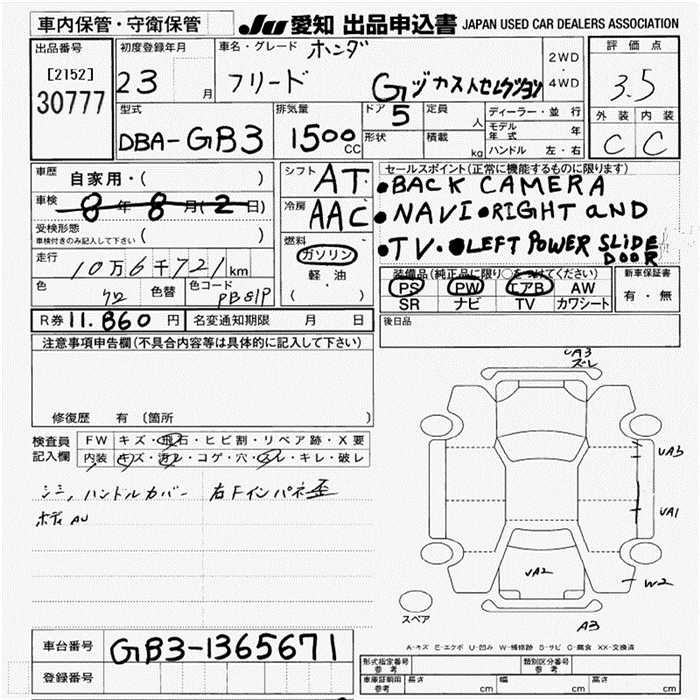 車内保管・守衛保管
JU 愛知 出品申込書 JAPAN USED CAR DEALERS ASSOCIATION
出品番号
[2152]
30777
初度登録年月
23 月
車名・グレード ホンダ
フリード Gジャストセレクション
2WD
・
4WD
評価点
3.5
外装 内装
C C
型式
DBA-GB3
排気量
1500 CC
ドア 5
形状
定員 人
積載 kg
ディーラー・並行
モデル年式 年
ハンドル 左・右
車歴 自家用・( )
車検 8年 8月(2日)
受検形態
車検付きのみ記入して下さい ( )
走行 10万6千721km
色 色替 色コード PB81P
シフト AT
冷房 AAC
燃料
ガソリン
軽油
( ・ )
セールスポイント(正常に機能するものに限ります)
•BACK CAMERA
•NAVI •RIGHT and
•TV. •LEFT POWER SLIDE DOOR
装備品(純正品に限り○をつけてください)
PS PW エアB AW
SR ナビ TV カワシート
新車保証書
有・無
R券 11.860 円 名変通知期限 月 日
後日品
注意事項申告欄(不具合内容等は具体的に記入して下さい)
修復歴 有 (箇所 )
検査員
記入欄
FW キズ・飛石・ヒビ割・リペア跡・X要
内装 キズ・汚レ・コゲ・穴・スレ・キレ・破レ
シミ, ハンドルカバー 右Fインパネ歪
ボディAU
UA3
ズレ
UA3
UA1
UA2
W2
A3
スペア
A-キズ E-エクボ U-凹み W-補修跡 S-サビ C-腐食 XX-交換済
車台番号 GB3-1365671
登録番号
形式指定番号
参考
類別区分番号
参考
車庫証明用
参考
長さ cm 幅 cm 高さ cm